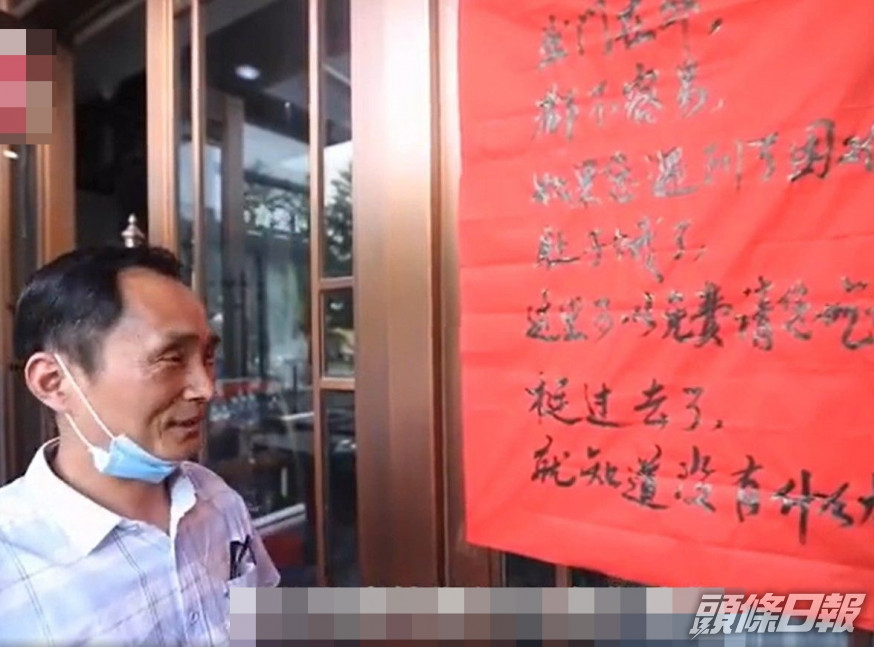 出门在外，
都不容易，
如果您遇到了困难
肚子饿了，
这里可以免费请您吃
挺过去了，
就知道没有什么大
頭條日報